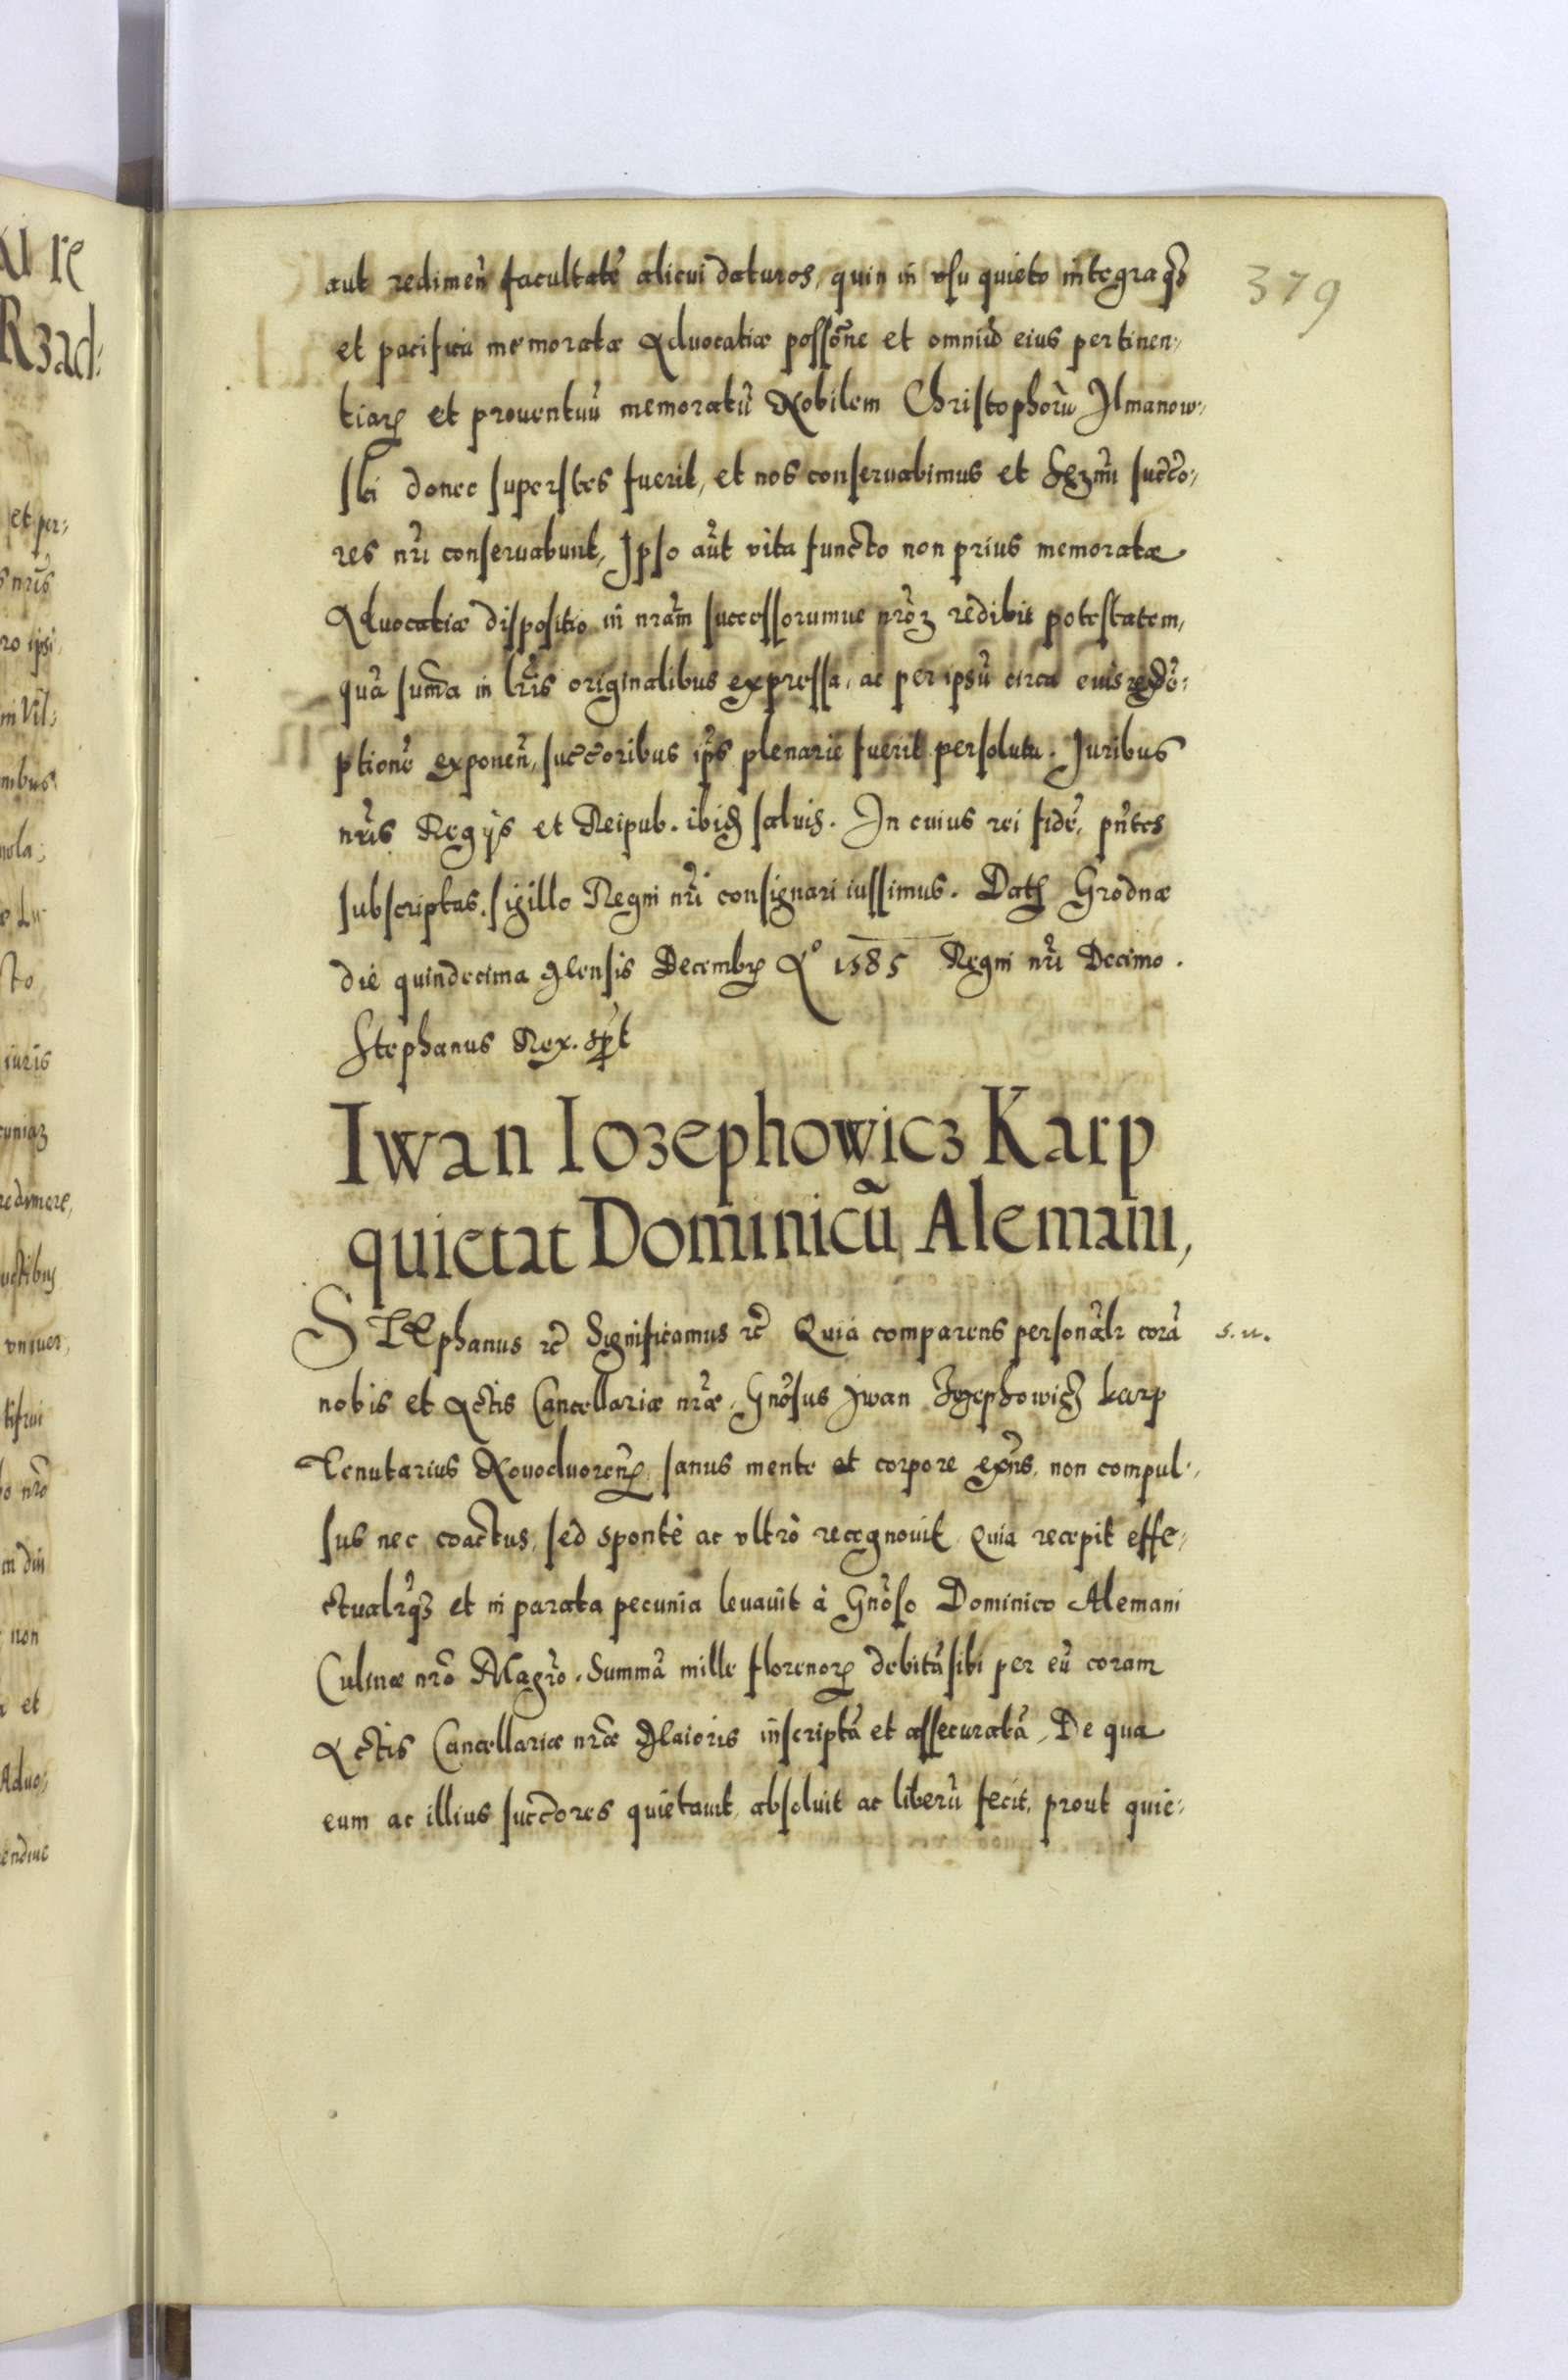 379
aut redimeñ facultatẽ alicui daturos, quin in usu quieto integraq₃
et pacifica memoratæ Aduocatiæ possõne et omniũ eius pertinen:
tiarꝝ et prouentuũ memoratũ Nobilem Christophorũ Ilmanow:
ski donec superstes fuerit, et nos conseruabimus et Serm̃i succõ:
res nr̃i conseruabunt, Ipso aũt vita functo non prius memoratæ
Aduocatiæ dispositio in nr̃am successorumue nr̃oꝝ redibit potestatem,
quã sum̃a in lr̃is originalibus expressa, ac per ipsũ circa eius redẽ:
ptionẽ exponeñ, succõribus ip̃s plenarie fuerit persoluta. Juribus
nr̃is Regijs et Reipub. ibid saluis. In cuius rei fidẽ, pñtes
subscriptas, sigillo Regni nr̃i consignari iussimus. Dat Grodnæ
die quindecima Mensis Decembꝝ Aº 1585 Regni nr̃i Decimo.
Stephanus Rex. sp̃t
Iwan Iozephowicz Karp
quietat Dominicũ Alemani,
STEphanus etc̃ Significamus etc̃ Quia comparens personalr̃ corã
s. n.
nobis et Actis Cancellariæ nr̃æ, Gnõsus Iwan Jozephowicz Karp
Tenutarius Nouoduoreñ, sanus mente et corpore exñs, non compul:
sus nec coactus, sed sponte ac ultrò recognouit Quia recepit effe:
ctualr̃q₃ et in parata pecunia leuauit à Gnõso Dominico Alemani
Culinæ nr̃o Magr̃o. Summã mille florenorꝝ debitã sibi per eũ coram
Actis Cancellariæ nr̃æ Maioris inscriptã et assecuratã, De qua
eum ac illius succõres quietauit, absoluit ac liberũ fecit, prout quie: